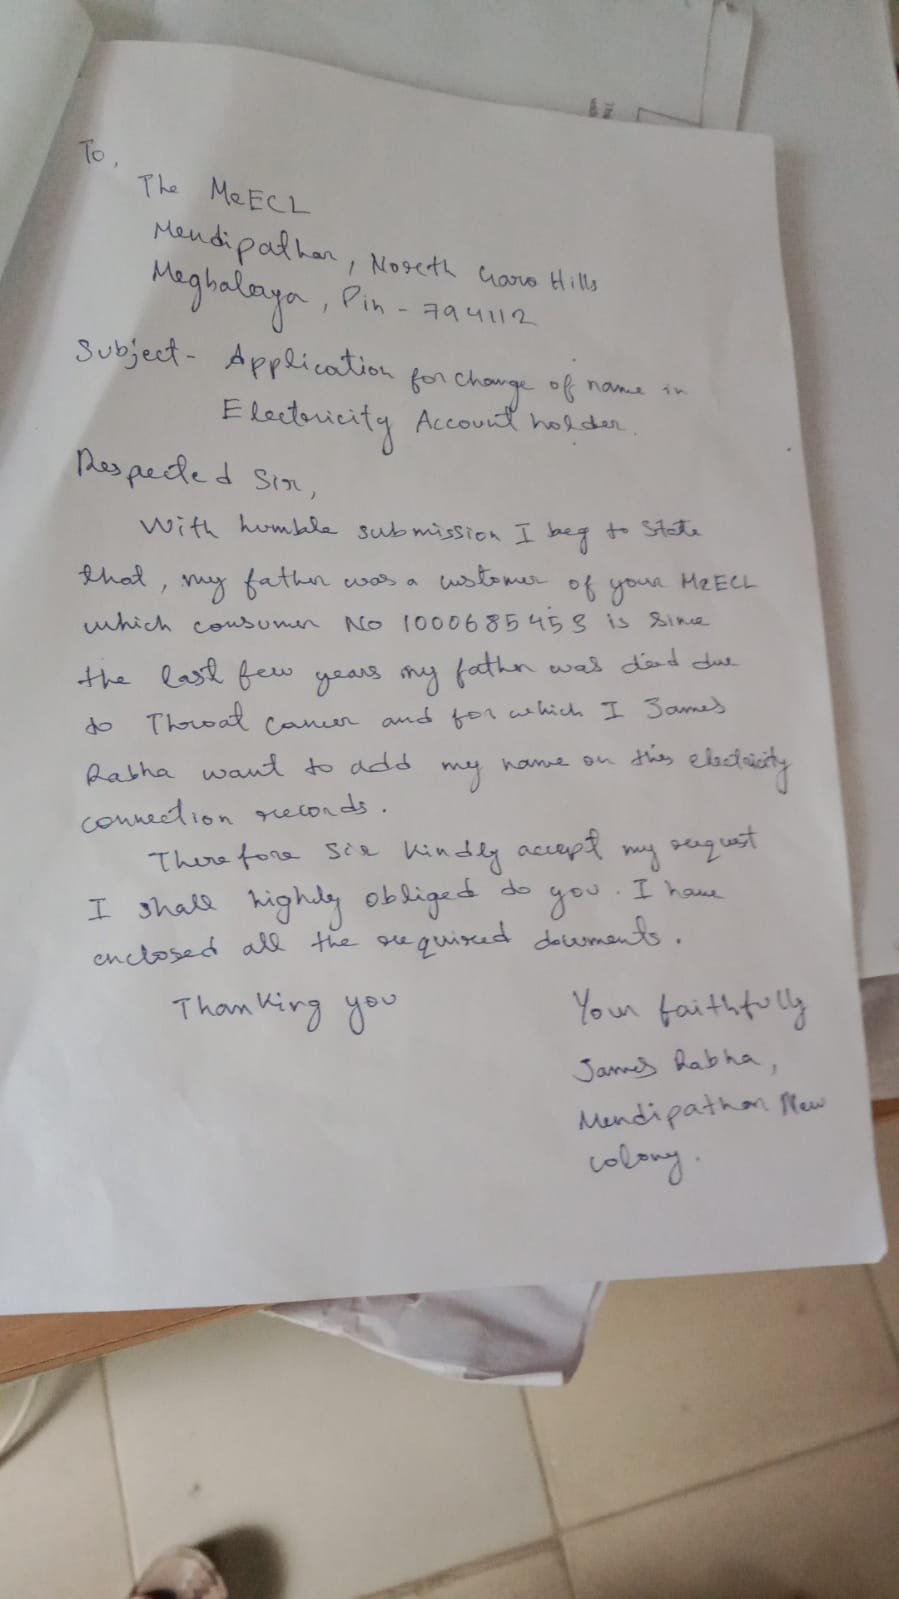 To,
The MeECL
Mendipathar, North Garo Hills
Meghalaya, Pin - 794112
Subject - Application for change of name in
Electricity Account holder.
Respected Sir,
With humble submission I beg to state
that, my father was a customer of your MeECL
which consumer No 1000685453 is since
the last few years my father was dead due
to Throat cancer and for which I James
Rabha want to add my name on this electricity
connection records.
Therefore Sir kindly accept my request
I shall highly obliged to you. I have
enclosed all the required documents.
Thanking you
Your faithfully
James Rabha,
Mendipathar New
colony.